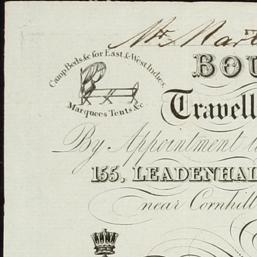 Camp Beds &c for East & West Indies,
Marquees Tents &c
By Appointment
155, LEADENHAL
near Cornhill